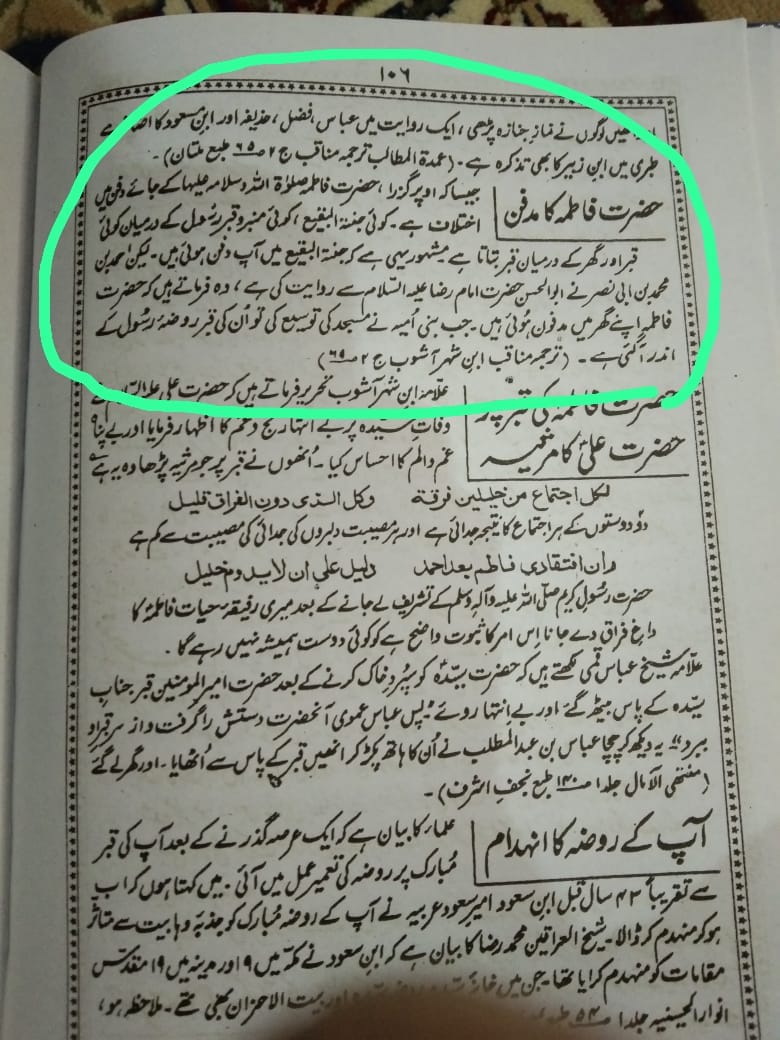 ١٠٦
لوگوں نے نماز جنازہ پڑھی، ایک روایت میں عباس، فضل، حذیفہ اور ابن مسعود کا
طبری میں ابن زبیر کا بھی تذکرہ ہے۔ (عمدۃ المطالب ترجمہ مناقب ج ۲ ص ۶۵ طبع ملتان)۔
حضرت فاطمہ کا مدفن
جیسا کہ اوپر گزرا، حضرت فاطمہ صلوٰۃ اللہ وسلامہ علیہا کے جائے دفن میں
اختلاف ہے۔ کوئی جنۃ البقیع، کوئی منبر و قبر رسول کے درمیان کوئی
قبر اور گھر کے درمیان قبر بتاتا ہے مشہور یہی ہے کہ جنۃ البقیع میں آپ دفن ہوئی ہیں۔ لیکن احمد بن
محمد بن ابی نصر نے ابوالحسن حضرت امام رضا علیہ السلام سے روایت کی ہے، وہ فرماتے ہیں کہ حضرت
فاطمہ اپنے گھر میں مدفون ہوئی ہیں۔ جب بنی امیہ نے مسجد کی توسیع کی تو اُن کی قبر روضۂ رسول کے
اندر آ گئی ہے۔ (ترجمہ مناقب ابن شہر آشوب ج ۲ ص ۶۵)
حضرت فاطمہ کی قبر پر
حضرت علی کا مرثیہ
علامہ ابن شہر آشوب تحریر فرماتے ہیں کہ حضرت علی علیہ السلام نے
وفات سیدہ پر بے انتہا رنج و غم کا اظہار فرمایا اور بے پناہ
غم و الم کا احساس کیا۔ اُنھوں نے قبر پر جو مرثیہ پڑھا وہ یہ ہے
لکل اجتماع من خلیلین فرقۃ وکل الذی دون الفراق قلیل
دو دوستوں کے ہر اجتماع کا نتیجہ جدائی ہے اور ہر مصیبت دلبروں کی جدائی کی مصیبت سے کم ہے
وان افتقادی فاطم بعد احمد دلیل علی ان لا یدوم خلیل
حضرت رسول کریم صلی اللہ علیہ وآلہ وسلم کے تشریف لے جانے کے بعد میری رفیقۂ حیات فاطمہ کا
داغ فراق دے جانا اِس امر کا ثبوت واضح ہے کہ کوئی دوست ہمیشہ نہیں رہے گا۔
علامہ شیخ عباس قمی لکھتے ہیں کہ حضرت سیدہ کو سپرد خاک کرنے کے بعد حضرت امیر المومنین قبر جناب
سیدہ کے پاس بیٹھ گئے اور بے انتہا روئے "پس عباس عموی آنحضرت دستش را گرفت و از سر قبر او
ببرد" یہ دیکھ کر چچا عباس بن عبدالمطلب نے اُن کا ہاتھ پکڑ کر انھیں قبر کے پاس سے اُٹھایا۔ اور گھر لے گئے
(منتھی الآمال جلد ۱ ص ۱۴۰ طبع نجف اشرف)۔
آپ کے روضہ کا انہدام
علماء کا بیان ہے کہ ایک عرصہ گذرنے کے بعد آپ کی قبر
مُبارک پر روضہ کی تعمیر عمل میں آئی۔ میں کہتا ہوں کہ اب
سے تقریباً ۴۳ سال قبل ابن سعود امیر سعود عربیہ نے آپ کے روضہ مُبارک کو جذبۂ وہابیت سے متاثر
ہو کر منہدم کر ڈالا۔ شیخ العراقین محمد رضا کا بیان ہے کہ ابن سعود نے مکہ میں ۹ اور مدینہ میں ۱۹ مقدس
مقامات کو منہدم کرایا تھا۔ جن میں اور بیت الاحزان بھی تھے۔ ملاحظہ ہو،
انوار الحسینیہ جلد ۱ ص ۵۴